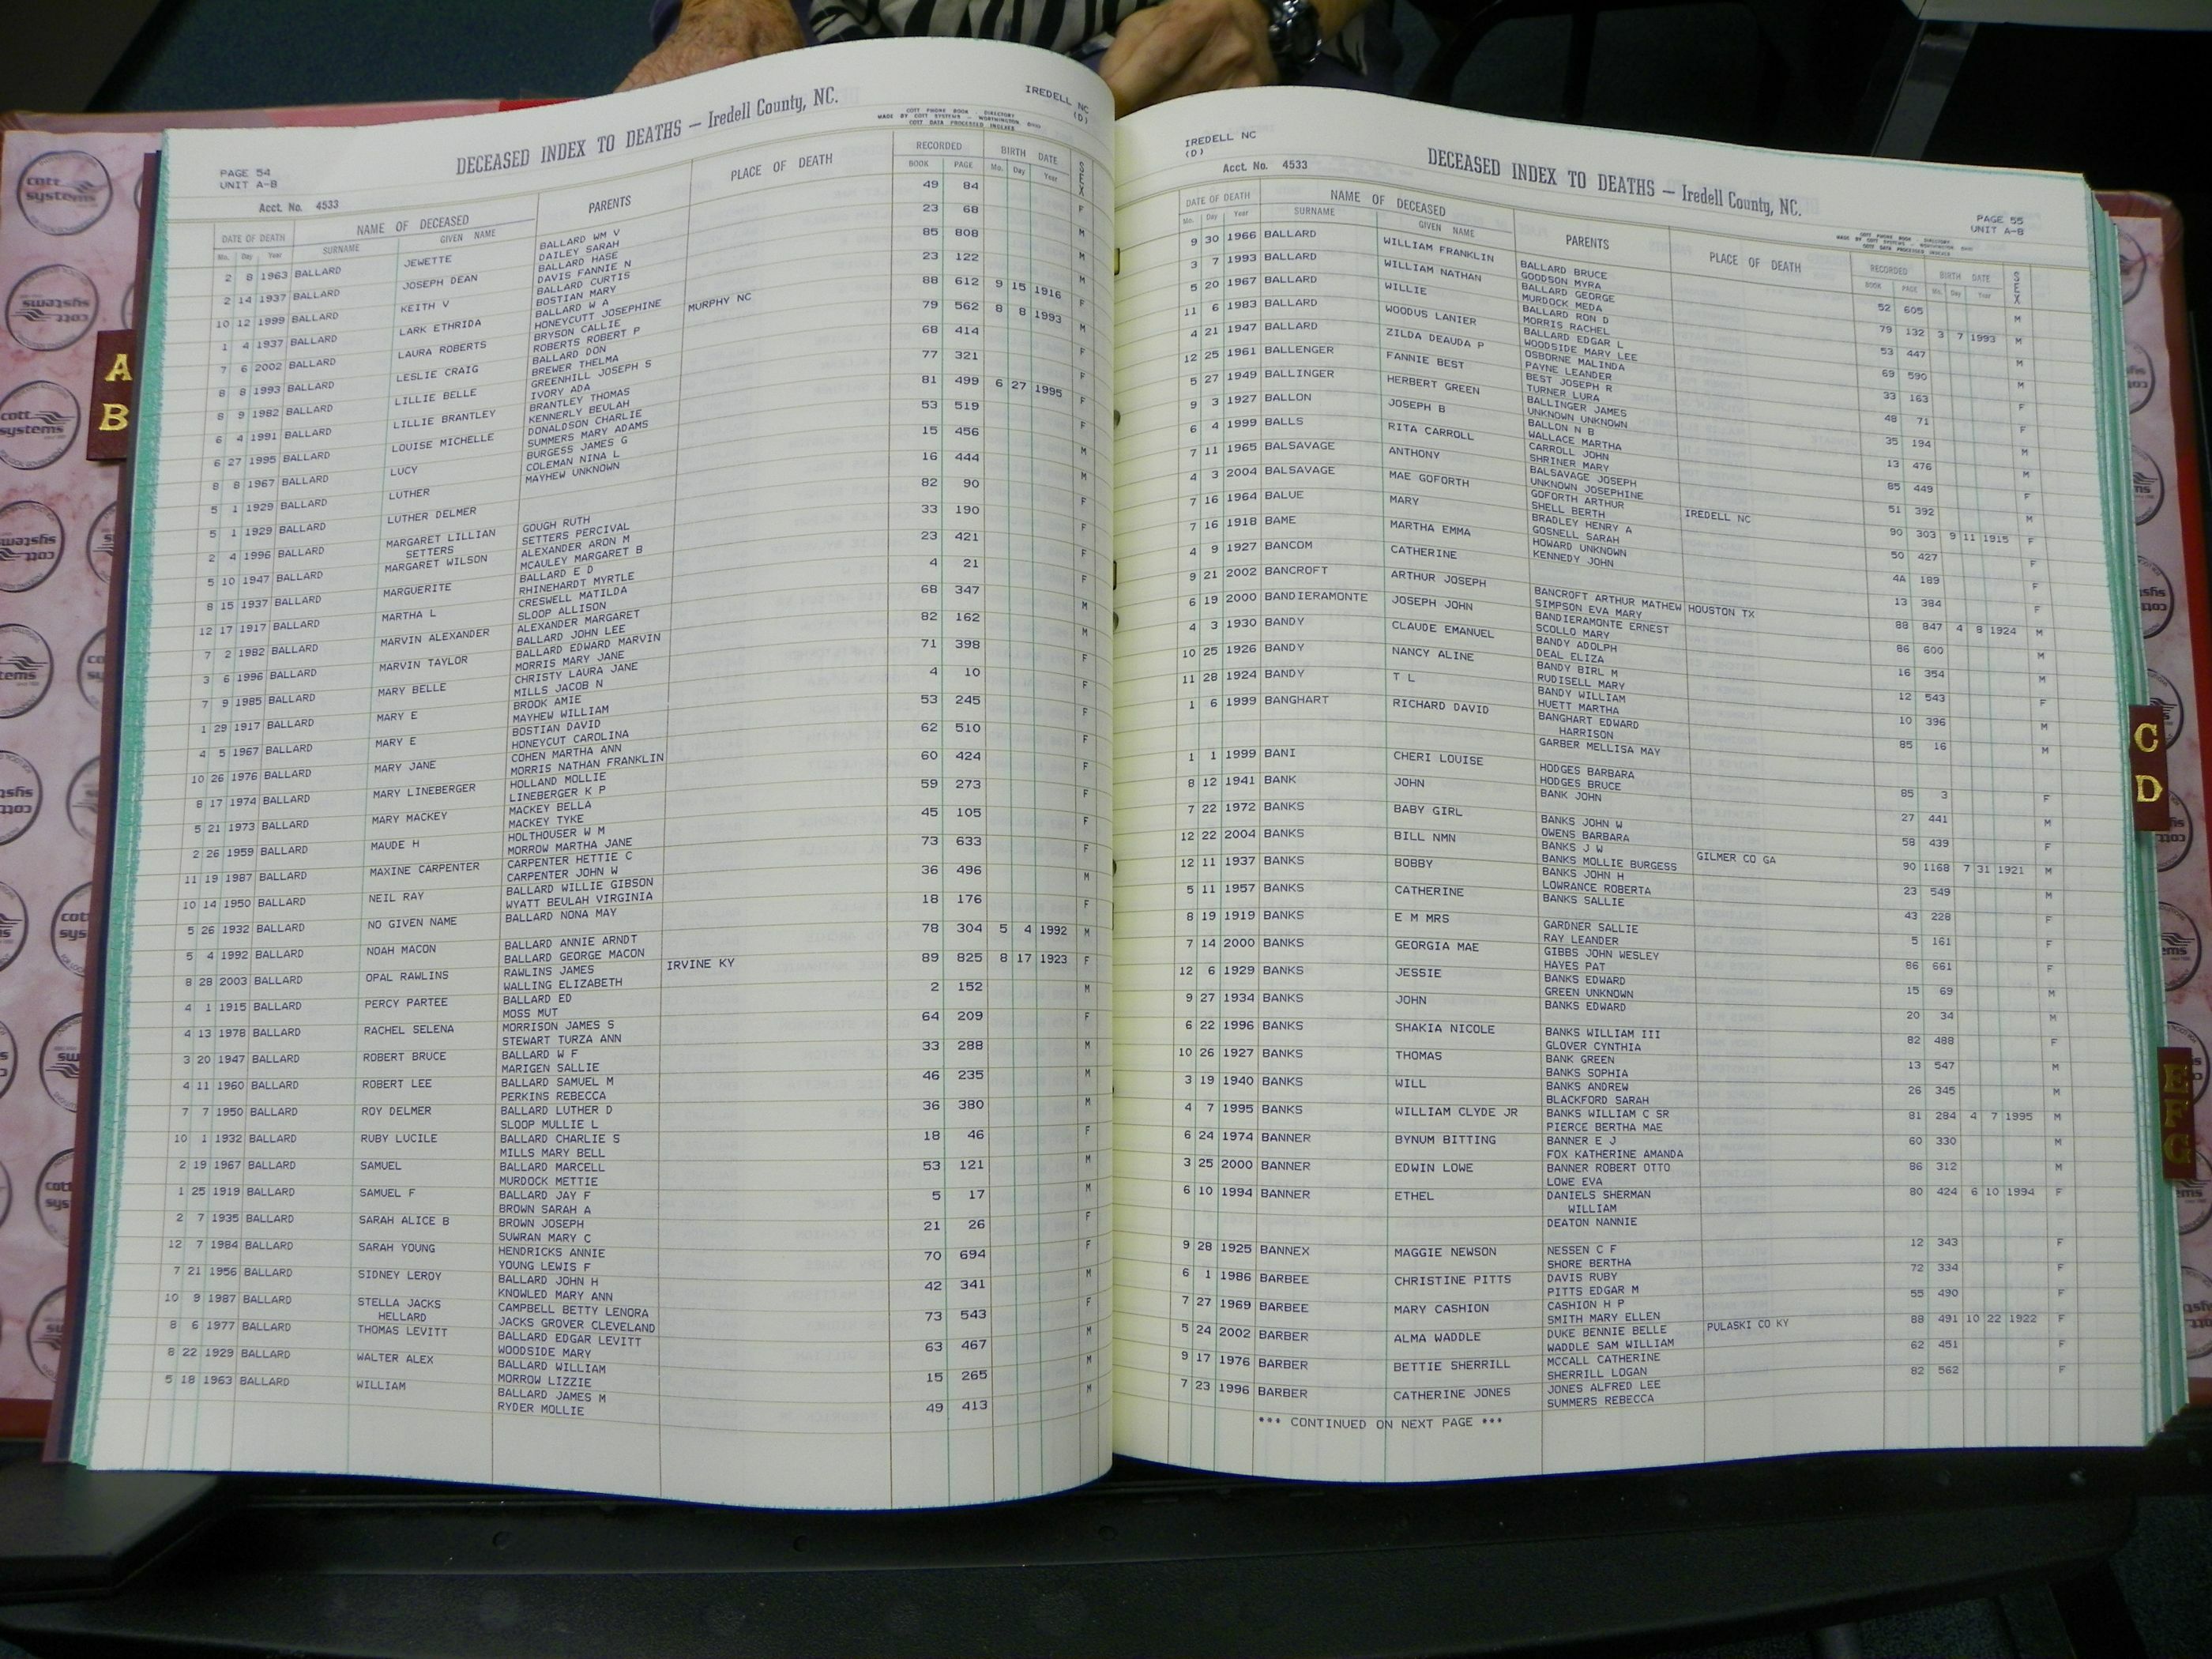 IREDELL NC
(D)
DECEASED INDEX TO DEATHS — Iredell County, NC.
COTT PHONE BOOK DIRECTORY
MADE BY COTT SYSTEMS — WORTHINGTON OHIO
COTT DATA PROCESSED INDEXES
PAGE 54
UNIT A-B
Acct. No. 4533
DATE OF DEATH NAME OF DECEASED PARENTS PLACE OF DEATH RECORDED BIRTH DATE SEX
Mo. Day Year SURNAME GIVEN NAME BOOK PAGE Mo. Day Year
2 8 1963 BALLARD JEWETTE BALLARD WM V 49 84 F
DAILEY SARAH
2 14 1937 BALLARD JOSEPH DEAN BALLARD HASE 23 68 M
DAVIS FANNIE N
10 12 1999 BALLARD KEITH V BALLARD CURTIS 85 808 M
BOSTIAN MARY
1 4 1937 BALLARD LARK ETHRIDA BALLARD W A 23 122 M
HONEYCUTT JOSEPHINE
7 6 2002 BALLARD LAURA ROBERTS BRYSON CALLIE MURPHY NC 88 612 9 15 1916
ROBERTS ROBERT P
8 8 1993 BALLARD LESLIE CRAIG BALLARD DON 79 562 8 8 1993 M
BREWER THELMA
8 9 1982 BALLARD LILLIE BELLE GREENHILL JOSEPH S 68 414 F
IVORY ADA
6 4 1991 BALLARD LILLIE BRANTLEY BRANTLEY THOMAS 77 321 F
KENNERLY BEULAH
6 27 1995 BALLARD LOUISE MICHELLE DONALDSON CHARLIE 81 499 6 27 1995 F
SUMMERS MARY ADAMS
8 8 1967 BALLARD LUCY BURGESS JAMES G 53 519 F
COLEMAN NINA L
5 1 1929 BALLARD LUTHER MAYHEW UNKNOWN 15 456 M
5 1 1929 BALLARD LUTHER DELMER 16 444 M
2 4 1996 BALLARD MARGARET LILLIAN GOUGH RUTH 82 90 F
SETTERS SETTERS PERCIVAL
5 10 1947 BALLARD MARGARET WILSON ALEXANDER ARON M 33 190 F
MCAULEY MARGARET B
8 15 1937 BALLARD MARGUERITE BALLARD E D 23 421 F
RHINEHARDT MYRTLE
12 17 1917 BALLARD MARTHA L CRESWELL MATILDA 4 21 F
SLOOP ALLISON
7 2 1982 BALLARD MARVIN ALEXANDER ALEXANDER MARGARET 68 347 M
BALLARD JOHN LEE
3 6 1996 BALLARD MARVIN TAYLOR BALLARD EDWARD MARVIN 82 162 M
MORRIS MARY JANE
7 9 1985 BALLARD MARY BELLE CHRISTY LAURA JANE 71 398 F
MILLS JACOB N
1 29 1917 BALLARD MARY E BROOK AMIE 4 10 F
MAYHEW WILLIAM
4 5 1967 BALLARD MARY E BOSTIAN DAVID 53 245 F
HONEYCUT CAROLINA
10 26 1976 BALLARD MARY JANE COHEN MARTHA ANN 62 510 F
MORRIS NATHAN FRANKLIN
8 17 1974 BALLARD MARY LINEBERGER HOLLAND MOLLIE 60 424 F
LINEBERGER K P
5 21 1973 BALLARD MARY MACKEY MACKEY BELLA 59 273 F
MACKEY TYKE
2 26 1959 BALLARD MAUDE H HOLTHOUSER W M 45 105 F
MORROW MARTHA JANE
11 19 1987 BALLARD MAXINE CARPENTER CARPENTER HETTIE C 73 633 F
CARPENTER JOHN W
10 14 1950 BALLARD NEIL RAY BALLARD WILLIE GIBSON 36 496 M
WYATT BEULAH VIRGINIA
5 26 1932 BALLARD NO GIVEN NAME BALLARD NONA MAY 18 176 F
5 4 1992 BALLARD NOAH MACON BALLARD ANNIE ARNDT 78 304 5 4 1992 M
BALLARD GEORGE MACON
8 28 2003 BALLARD OPAL RAWLINS RAWLINS JAMES IRVINE KY 89 825 8 17 1923 F
WALLING ELIZABETH
4 1 1915 BALLARD PERCY PARTEE BALLARD ED 2 152 M
MOSS MUT
4 13 1978 BALLARD RACHEL SELENA MORRISON JAMES S 64 209 F
STEWART TURZA ANN
3 20 1947 BALLARD ROBERT BRUCE BALLARD W F 33 288 M
MARIGEN SALLIE
4 11 1960 BALLARD ROBERT LEE BALLARD SAMUEL M 46 235 M
PERKINS REBECCA
7 7 1950 BALLARD ROY DELMER BALLARD LUTHER D 36 380 M
SLOOP MULLIE L
10 1 1932 BALLARD RUBY LUCILE BALLARD CHARLIE S 18 46 F
MILLS MARY BELL
2 19 1967 BALLARD SAMUEL BALLARD MARCELL 53 121 M
MURDOCK METTIE
1 25 1919 BALLARD SAMUEL F BALLARD JAY F 5 17 M
BROWN SARAH A
2 7 1935 BALLARD SARAH ALICE B BROWN JOSEPH 21 26 F
SUWRAN MARY C
12 7 1984 BALLARD SARAH YOUNG HENDRICKS ANNIE 70 694 F
YOUNG LEWIS F
7 21 1956 BALLARD SIDNEY LEROY BALLARD JOHN H 42 341 M
KNOWLED MARY ANN
10 9 1987 BALLARD STELLA JACKS CAMPBELL BETTY LENORA 73 543 F
HELLARD JACKS GROVER CLEVELAND
8 6 1977 BALLARD THOMAS LEVITT BALLARD EDGAR LEVITT 63 467 M
WOODSIDE MARY
8 22 1929 BALLARD WALTER ALEX BALLARD WILLIAM 15 265 M
MORROW LIZZIE
5 18 1963 BALLARD WILLIAM BALLARD JAMES M 49 413 M
RYDER MOLLIE
IREDELL NC
(D)
Acct. No. 4533
DECEASED INDEX TO DEATHS — Iredell County, NC.
COTT PHONE BOOK DIRECTORY
MADE BY COTT SYSTEMS — WORTHINGTON OHIO
COTT DATA PROCESSED INDEXES
PAGE 55
UNIT A-B
DATE OF DEATH NAME OF DECEASED PARENTS PLACE OF DEATH RECORDED BIRTH DATE SEX
Mo. Day Year SURNAME GIVEN NAME BOOK PAGE Mo. Day Year
9 30 1966 BALLARD WILLIAM FRANKLIN BALLARD BRUCE 52 605 M
GOODSON MYRA
3 7 1993 BALLARD WILLIAM NATHAN BALLARD GEORGE 79 132 3 7 1993 M
MURDOCK MEDA
5 20 1967 BALLARD WILLIE BALLARD RON D 53 447 M
MORRIS RACHEL
11 6 1983 BALLARD WOODUS LANIER BALLARD EDGAR L 69 590 M
WOODSIDE MARY LEE
4 21 1947 BALLARD ZILDA DEAUDA P OSBORNE MALINDA 33 163 F
PAYNE LEANDER
12 25 1961 BALLENGER FANNIE BEST BEST JOSEPH R 48 71 F
TURNER LURA
5 27 1949 BALLINGER HERBERT GREEN BALLINGER JAMES 35 194 M
UNKNOWN UNKNOWN
9 3 1927 BALLON JOSEPH B BALLON N B 13 476 M
WALLACE MARTHA
6 4 1999 BALLS RITA CARROLL CARROLL JOHN 85 449 F
SHRINER MARY
7 11 1965 BALSAVAGE ANTHONY BALSAVAGE JOSEPH 51 392 M
UNKNOWN JOSEPHINE
4 3 2004 BALSAVAGE MAE GOFORTH GOFORTH ARTHUR IREDELL NC 90 303 9 11 1915 F
SHELL BERTH
7 16 1964 BALUE MARY BRADLEY HENRY A 50 427 F
GOSNELL SARAH
7 16 1918 BAME MARTHA EMMA HOWARD UNKNOWN 4A 189 F
4 9 1927 BANCOM CATHERINE KENNEDY JOHN 13 384
9 21 2002 BANCROFT ARTHUR JOSEPH BANCROFT ARTHUR MATHEW HOUSTON TX 88 847 4 8 1924 M
SIMPSON EVA MARY
6 19 2000 BANDIERAMONTE JOSEPH JOHN BANDIERAMONTE ERNEST 86 600 M
SCOLLO MARY
4 3 1930 BANDY CLAUDE EMANUEL BANDY ADOLPH 16 354 M
DEAL ELIZA
10 25 1926 BANDY NANCY ALINE BANDY BIRL M 12 543 F
RUDISELL MARY
11 28 1924 BANDY T L BANDY WILLIAM 10 396 M
HUETT MARTHA
1 6 1999 BANGHART RICHARD DAVID BANGHART EDWARD 85 16 M
HARRISON
GARBER MELLISA MAY
1 1 1999 BANI CHERI LOUISE HODGES BARBARA 85 3 F
HODGES BRUCE
8 12 1941 BANK JOHN BANK JOHN 27 441 M
7 22 1972 BANKS BABY GIRL BANKS JOHN W 58 439 F
OWENS BARBARA
12 22 2004 BANKS BILL NMN BANKS J W GILMER CO GA 90 1168 7 31 1921 M
BANKS MOLLIE BURGESS
12 11 1937 BANKS BOBBY BANKS JOHN H 23 549 M
LOWRANCE ROBERTA
5 11 1957 BANKS CATHERINE BANKS SALLIE 43 228 F
8 19 1919 BANKS E M MRS GARDNER SALLIE 5 161 F
RAY LEANDER
7 14 2000 BANKS GEORGIA MAE GIBBS JOHN WESLEY 86 661 F
HAYES PAT
12 6 1929 BANKS JESSIE BANKS EDWARD 15 69 M
GREEN UNKNOWN
9 27 1934 BANKS JOHN BANKS EDWARD 20 34 M
6 22 1996 BANKS SHAKIA NICOLE BANKS WILLIAM III 82 488 F
GLOVER CYNTHIA
10 26 1927 BANKS THOMAS BANK GREEN 13 547 M
BANKS SOPHIA
3 19 1940 BANKS WILL BANKS ANDREW 26 345 M
BLACKFORD SARAH
4 7 1995 BANKS WILLIAM CLYDE JR BANKS WILLIAM C SR 81 284 4 7 1995 M
PIERCE BERTHA MAE
6 24 1974 BANNER BYNUM BITTING BANNER E J 60 330 M
FOX KATHERINE AMANDA
3 25 2000 BANNER EDWIN LOWE BANNER ROBERT OTTO 86 312 M
LOWE EVA
6 10 1994 BANNER ETHEL DANIELS SHERMAN 80 424 6 10 1994 F
WILLIAM
DEATON NANNIE
9 28 1925 BANNEX MAGGIE NEWSON NESSEN C F 12 343 F
SHORE BERTHA
6 1 1986 BARBEE CHRISTINE PITTS DAVIS RUBY 72 334 F
PITTS EDGAR M
7 27 1969 BARBEE MARY CASHION CASHION H P 55 490 F
SMITH MARY ELLEN
5 24 2002 BARBER ALMA WADDLE DUKE BENNIE BELLE PULASKI CO KY 88 491 10 22 1922 F
WADDLE SAM WILLIAM
9 17 1976 BARBER BETTIE SHERRILL MCCALL CATHERINE 62 451 F
SHERRILL LOGAN
7 23 1996 BARBER CATHERINE JONES JONES ALFRED LEE 82 562 F
SUMMERS REBECCA
*** CONTINUED ON NEXT PAGE ***
A
B
C
D
E
F
G
cott systems